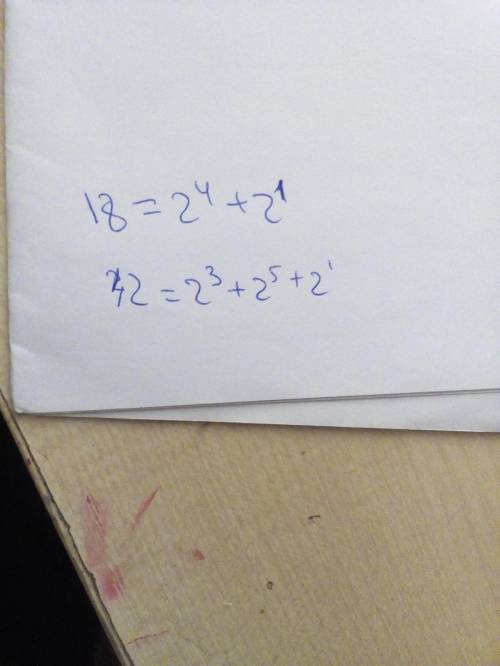 18 = 2⁴ + 2¹
42 = 2³ + 2⁵ + 2¹